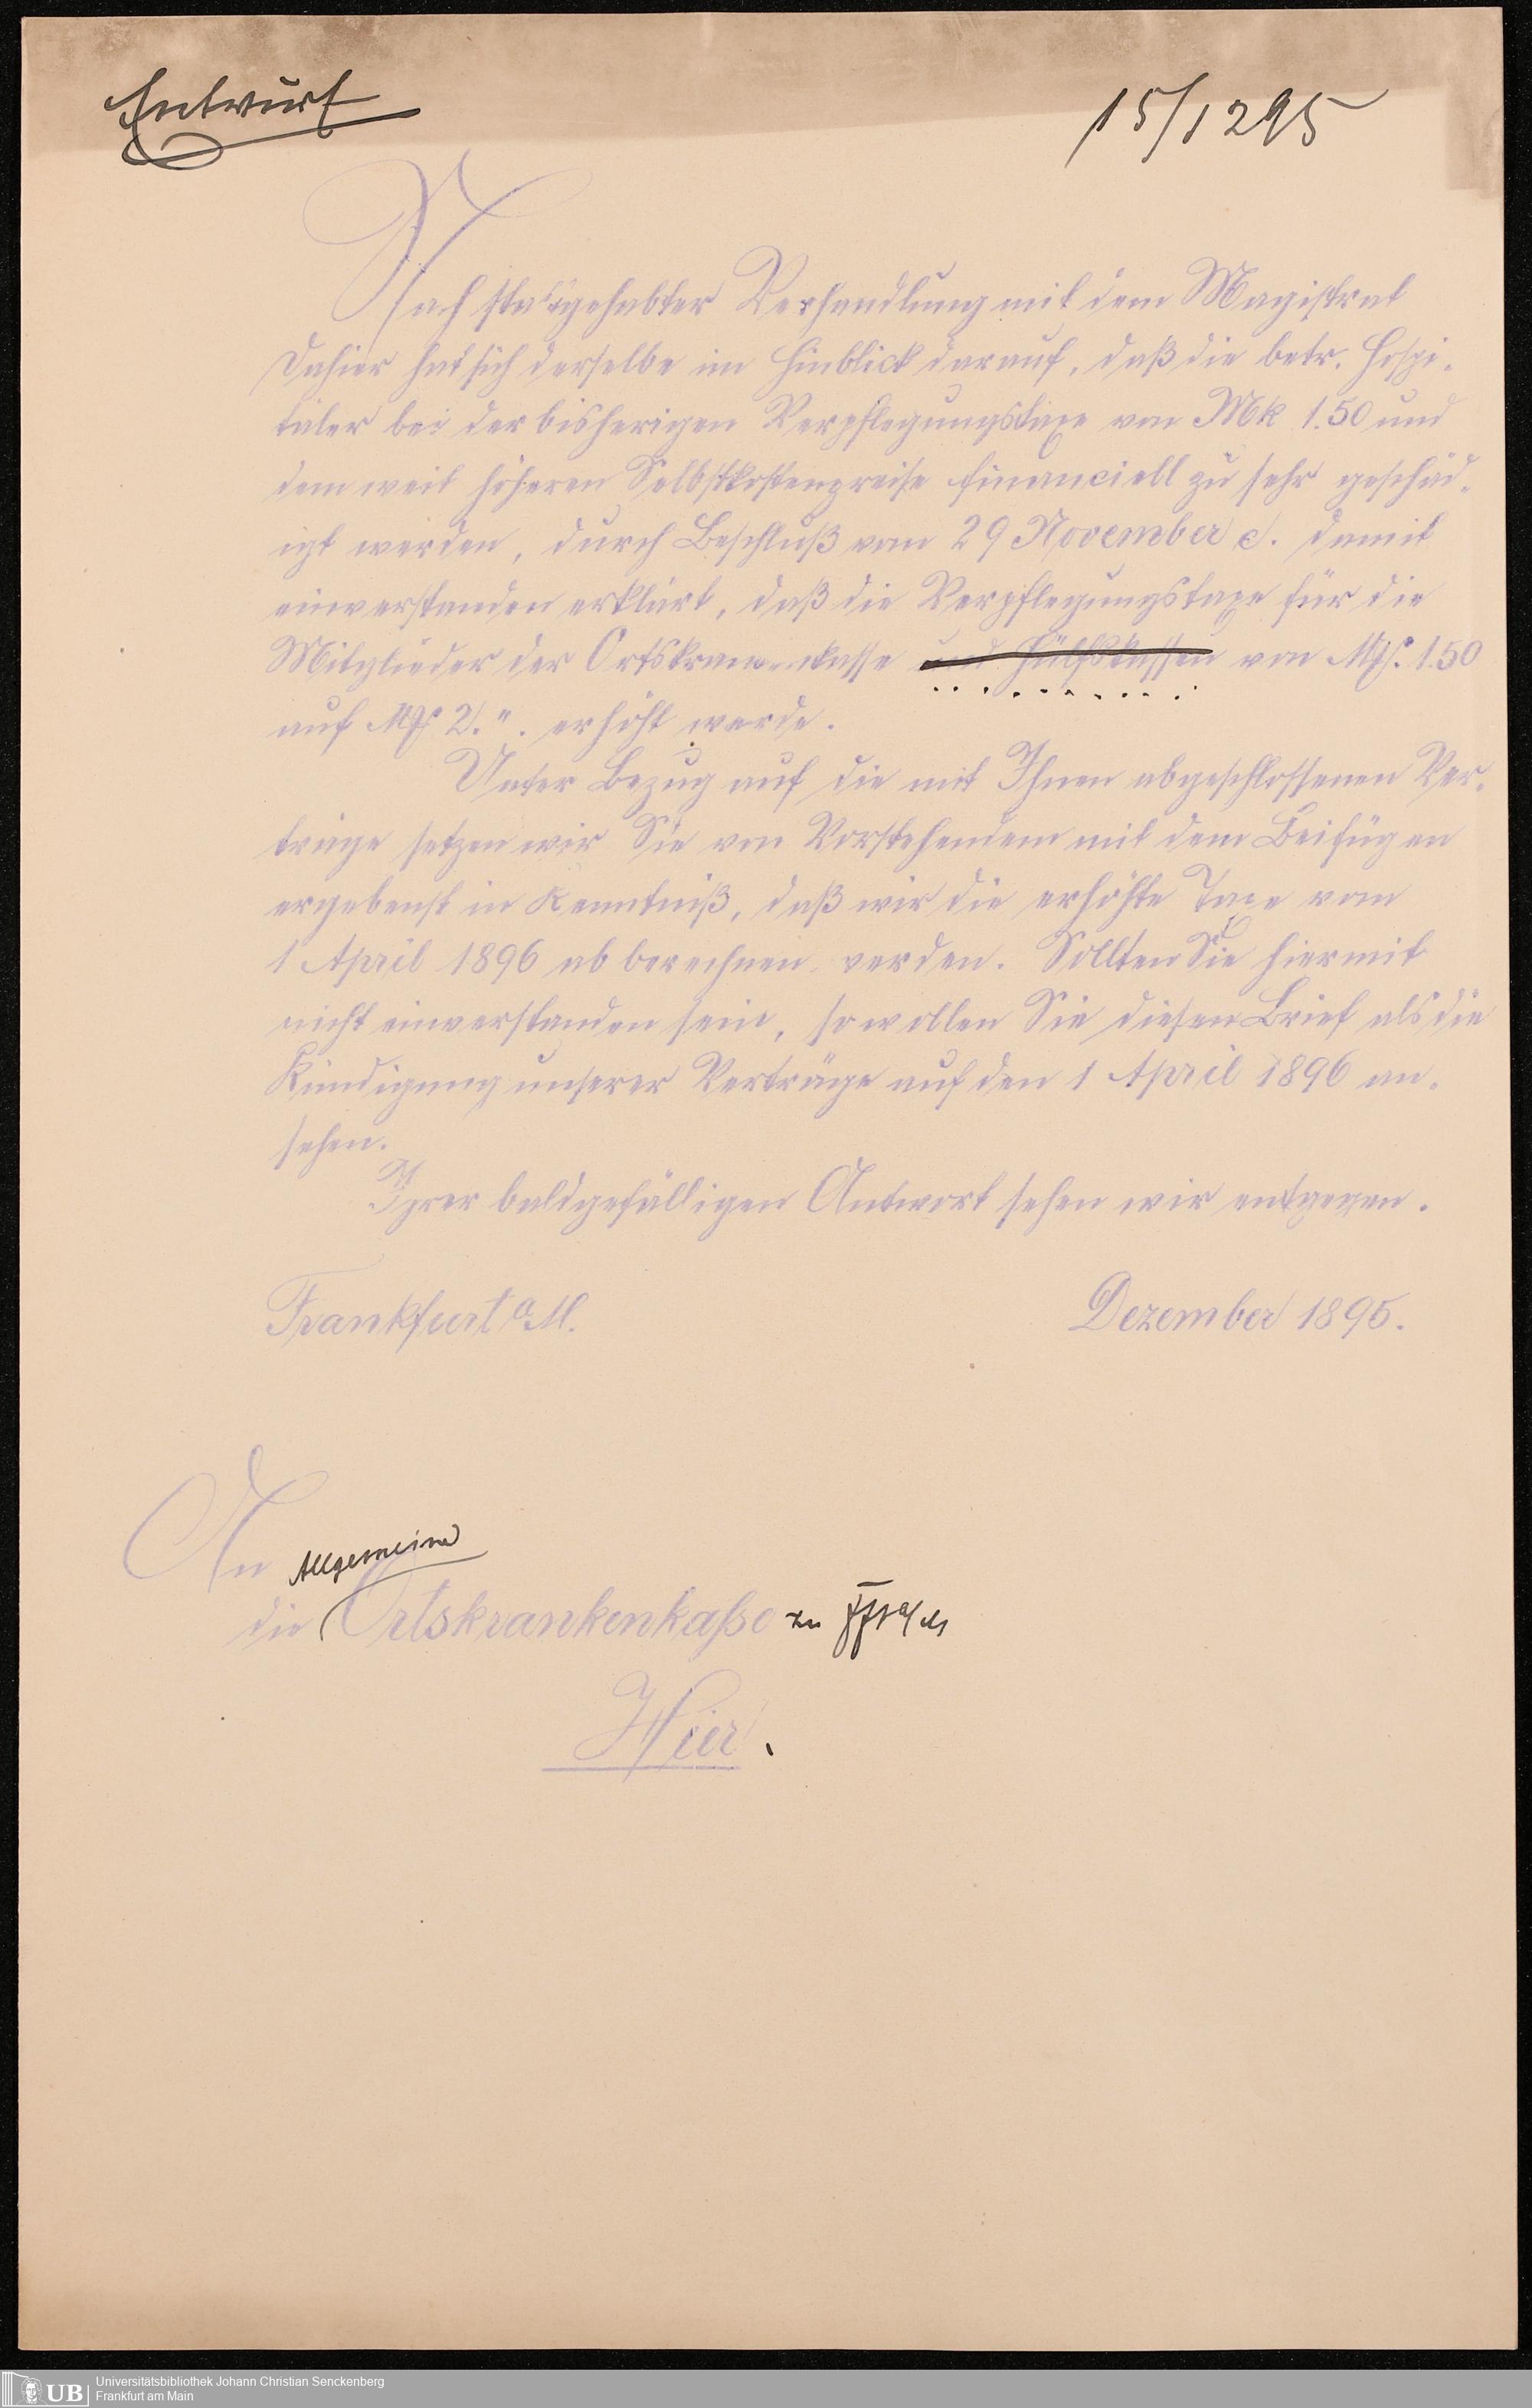 Entwurf
15/12 95
Nach stattgehabter Verhandlung mit dem Magistrat
dahier hat sich derselbe im Hinblick darauf, daß die betr. Hospi-
täler bei der bisherigen Verpflegungstaxe von Mk 1.50 und
dem weit höheren Selbstkostenpreise financiell zu sehr geschäd-
igt werden, durch Beschluß vom 29 November c. damit
einverstanden erklärt, daß die Verpflegungstaxe für die
Mitglieder der Ortskrankenkasse und Hülfskassen von Mk. 1.50
auf Mk 2.". erhöht werde.
Unter Bezug auf die mit Ihnen abgeschlossenen Ver-
träge setzen wir Sie von Vorstehendem mit dem Beifügen
ergebenst in Kenntniß, daß wir die erhöhte Taxe vom
1 April 1896 ab berechnen werden. Sollten Sie hiermit
nicht einverstanden sein, so wollen Sie diesen Brief als die
Kündigung unserer Verträge auf den 1 April 1896 an-
sehen.
Ihrer baldgefälligen Antwort sehen wir entgegen.
Frankfurt a M. Dezember 1895.
An
Allgemeine
die Ortskrankenkaße zu Ffrt a/M
Hier.
UB Universitätsbibliothek Johann Christian Senckenberg
Frankfurt am Main